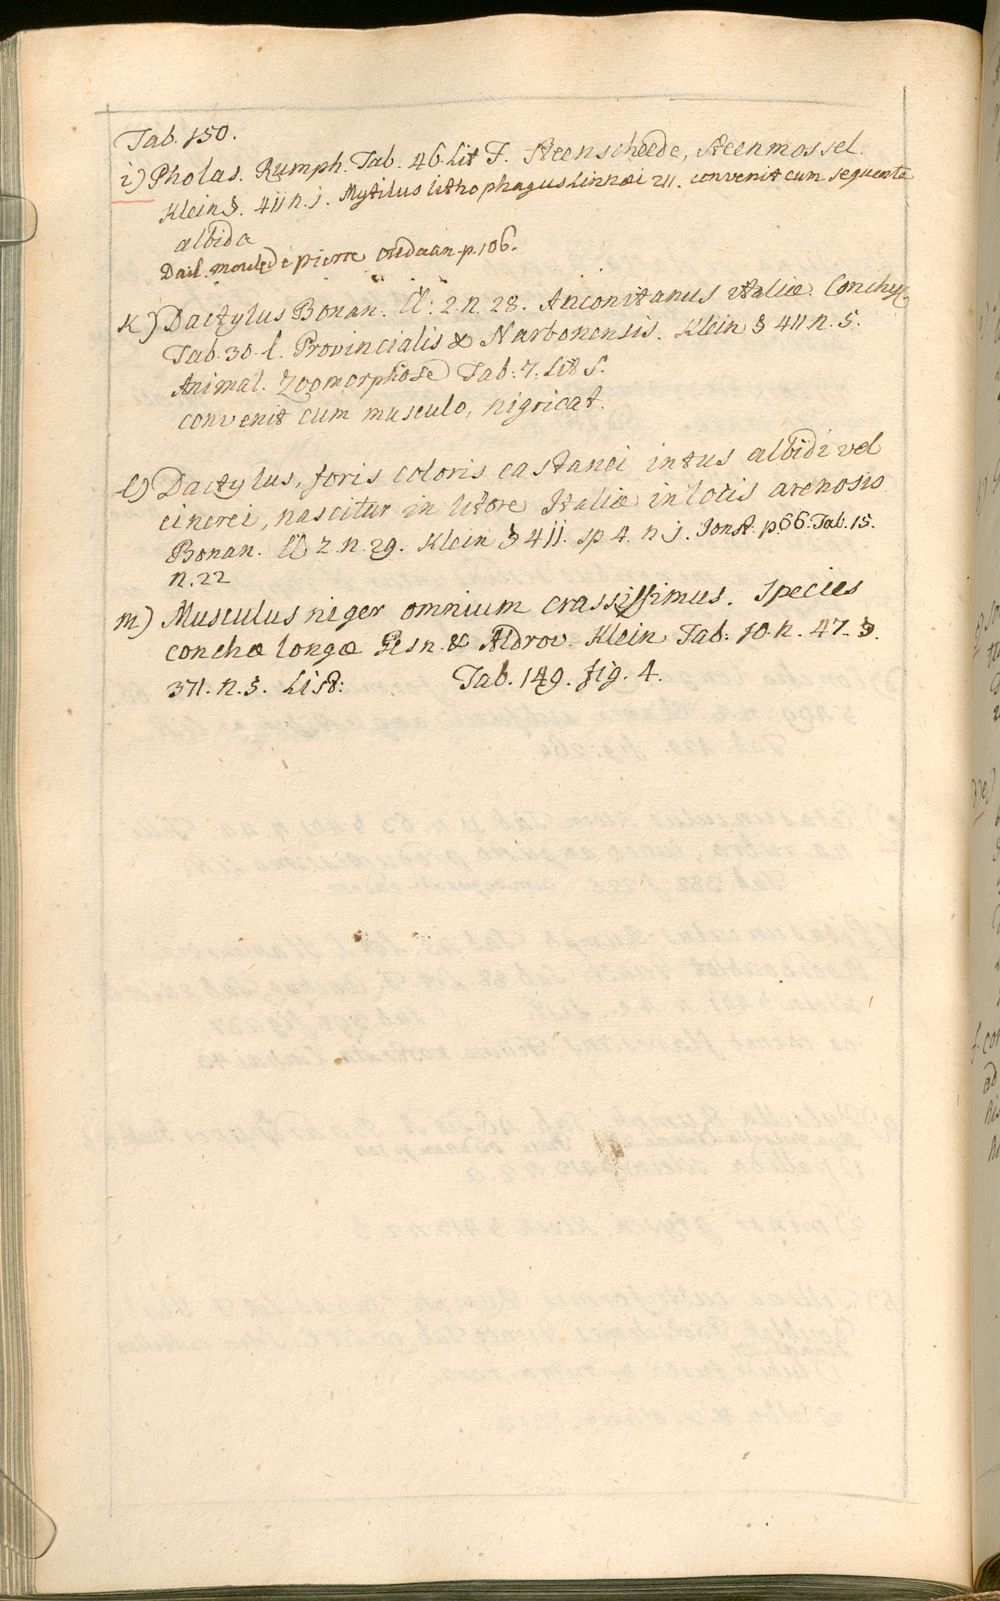 Tab. 150.
i) Pholas. Rumph. Tab. 46. Lit F. Steenscheede, Steenmossel.
Klein §. 411 n. j. Mytilus lithophagus Linnæi 211. convenit cum sequente
albida
Dail. moule de pierre Oudaan p. 106.
K) Dactylus Bonan. Cl: 2. n. 28. Anconitanus Italiæ. Conchyl
Tab. 30. l. Provincialis & Narbonensis. Klein § 411 n. 5.
Animal. Zoomorphose Tab. 7. Lit S.
convenit cum musculo, nigricat.
l) Dactylus, foris coloris castanei intus albidi vel
cinerei, nascitur in litore Italiæ in locis arenosis
Bonan. Cl 2. n. 29. Klein § 411. sp 4. n j. Jonst. p. 66. Tab. 15.
n. 22
m) Musculus niger omnium crassissimus. Species
conchæ longæ Gesn. & Aldrov. Klein Tab. 10. n. 47. §.
371. n. 3. List: Tab. 149. fig. 4.